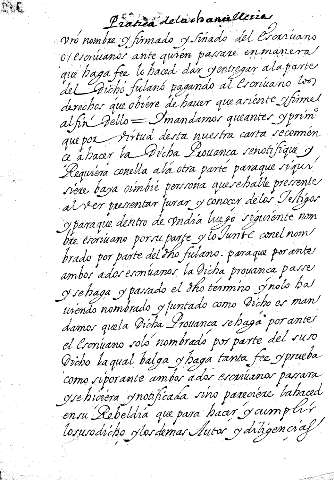 Pratica de la chancilleria
vrõ nombre y firmado y sinado del Escrivano
o Escrivanos ante quien passare en manera
que haga fee lo haced dar y entregar a la parte
del Dicho fulano pagando al Escrivano los
derechos que obiere de haver que asiente y firme
al fin dello = Y mandamos que antes y prim
que por virtud desta nuestra carta se comen
ce a hacer la Dicha Provança se notifique y
Requiera con ella a la otra parte para que si qui
siere baya o imbie perssona que se halle presente
al ver presentar jurar y conocer de los Testigos
y para que dentro de Un dia luego siguiente nom
bre escrivano por su parte y lo Junte con el nom
brado por parte del dho fulano. para que por ante
ambos ados escrivanos la Dicha provança passe
y se haga y passado el dho termino y no lo ha
viendo nombrado y juntado como Dicho es man
damos que la Dicha Provança se haga por antes
el Escrivano solo nombrado por parte del suso
Dicho la qual balga y haga tanta fee y prueba
como si por ante ambos ados escrivanos passara
y se hiciera y notificada si no pareciere la haced
en su Rebeldia que para hacer y cumplir
lo suso dicho y los demas Autos y diligencias